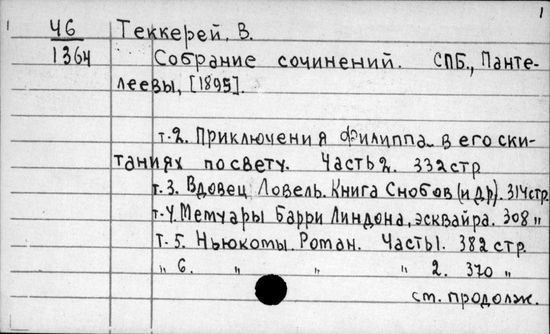 1
Ч6 Теккерей, В.
1364 Собрание сочинений. СПБ., Панте-
леевы, [1895].
т.2. Приключения Филиппа в его ски-
таниях по свету. Часть 2. 332 стр
т.3. Вдовец Ловель. Книга Снобов (и др). 314 стр
т.4. Мемуары Барри Линдона, эсквайра. 308 "
Т.5. Ньюкомы. Роман. Часть 1. 382 стр.
" 6. " " " 2. 370 "
см. продолж.